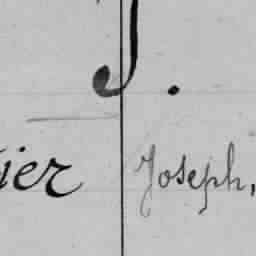 J.
ier Joseph,